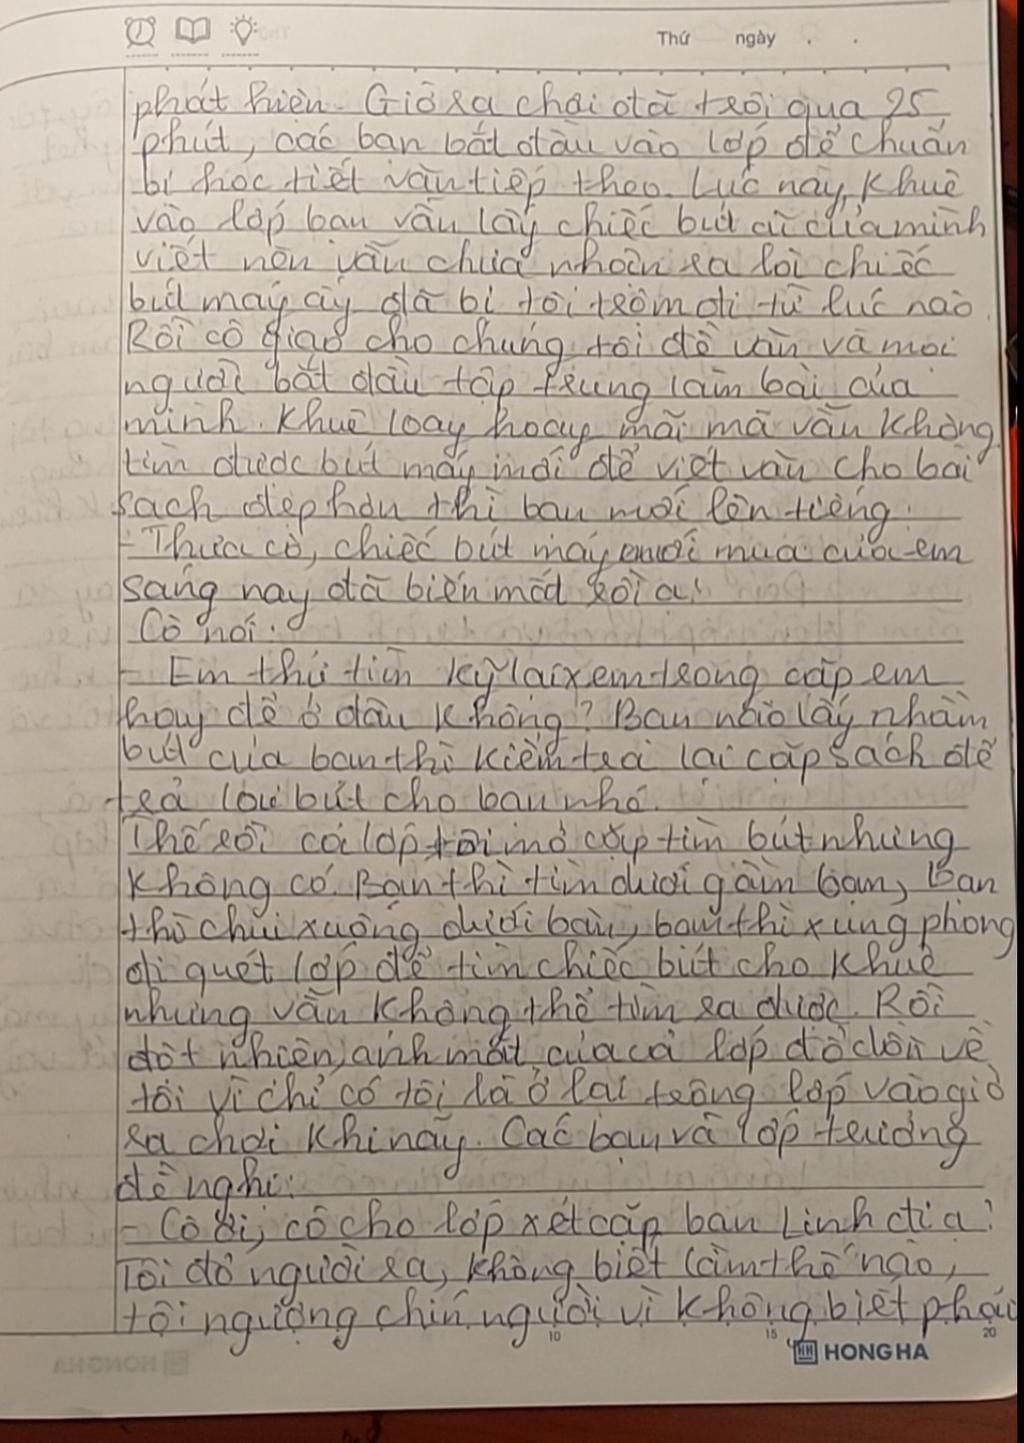 Thứ ngày . .
phát hiện. Giờ ra chơi đã trôi qua 25
phút, các bạn bắt đầu vào lớp để chuẩn
bị học tiết văn tiếp theo. Lúc này, Khuê
vào lớp bạn vẫn lấy chiếc bút cũ của mình
viết nên vẫn chưa nhận ra rồi chiếc
bút máy ấy đã bị tôi trộm đi từ lúc nào.
Rồi cô giao cho chúng tôi đề văn và mọi
người bắt đầu tập trung làm bài của
mình. Khuê loay hoay mãi mà vẫn không
tìm được bút máy mới để viết văn cho bài
sạch đẹp hơn thì bạn mới lên tiếng:
- Thưa cô, chiếc bút máy mới mua của em
sáng nay đã biến mất rồi ạ!
Cô nói:
- Em thử tìm kỹ lại xem trong cặp em
hay để ở đâu không? Bạn nào lấy nhầm
bút của bạn thì kiểm tra lại cặp sách để
trả lại bút cho bạn nhé.
Thế rồi cả lớp tôi mở cặp tìm bút nhưng
không có. Bạn thì tìm dưới gầm bàn, bạn
thì chui xuống dưới bàn, bạn thì xung phong
đi quét lớp để tìm chiếc bút cho Khuê
nhưng vẫn không thể tìm ra được. Rồi
đột nhiên, ánh mắt của cả lớp đổ dồn về
tôi vì chỉ có tôi là ở lại trong lớp vào giờ
ra chơi khi nãy. Các bạn và lớp trưởng
đề nghị:
- Cô ơi, cô cho lớp xét cặp bạn Linh đi ạ!
Tôi đơ người ra, không biết làm thế nào,
tôi ngượng chín người vì không biết phải
10 15 20
HONG HA